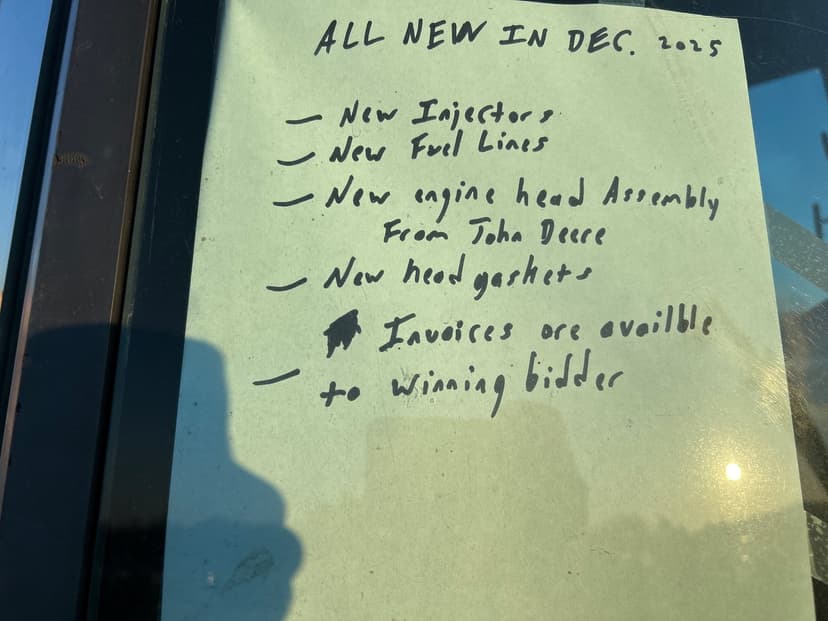 ALL NEW IN DEC. 2025
— New Injectors
— New Fuel Lines
— New engine head Assembly
From John Deere
— New head gaskets
Invoices are availble
— to winning bidder